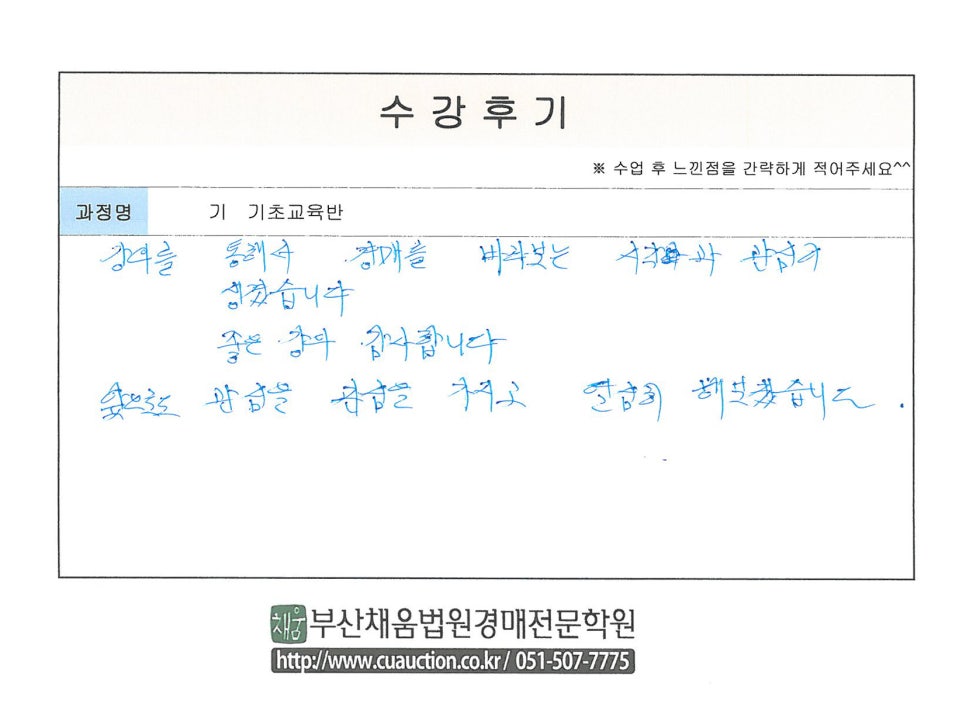 수강후기
※ 수업 후 느낀점을 간략하게 적어주세요^^
과정명 기 기초교육반
강의를 통해서 경매를 바라보는 시각과 관점이
생겼습니다
좋은 강의 감사합니다
앞으로도 관심을 관심을 가지고 열심히 해보겠습니다.
채움 부산채움법원경매전문학원
http://www.cuauction.co.kr/ 051-507-7775